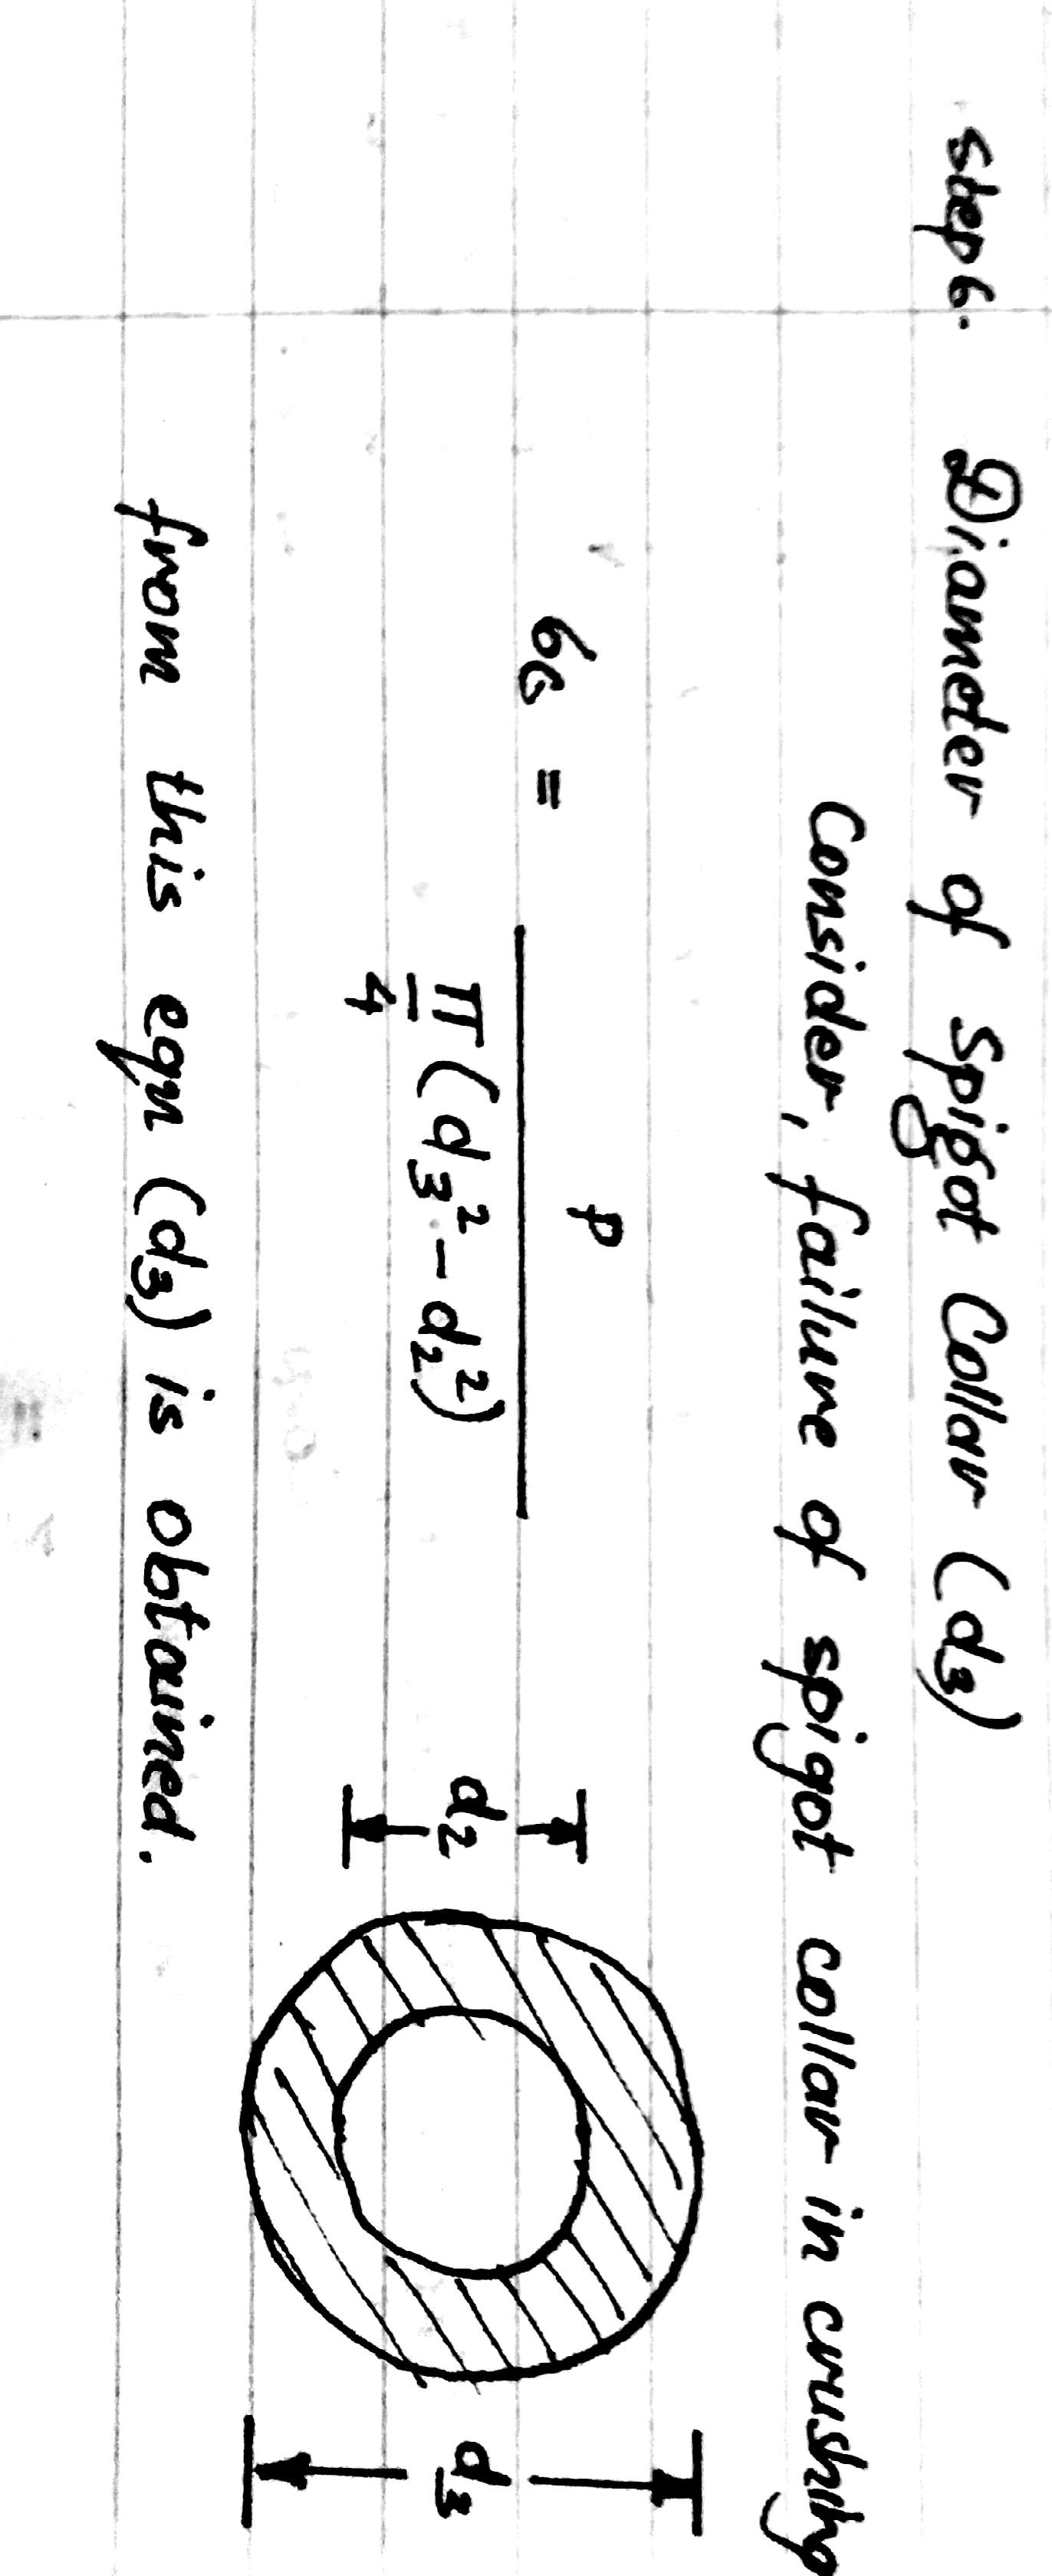 step 6. Diameter of Spigot Collar (d₃)
Consider, failure of spigot collar in crushing
σc = P / π/4 (d₃² - d₂²)
d₂
d₃
from this eqn (d₃) is obtained.